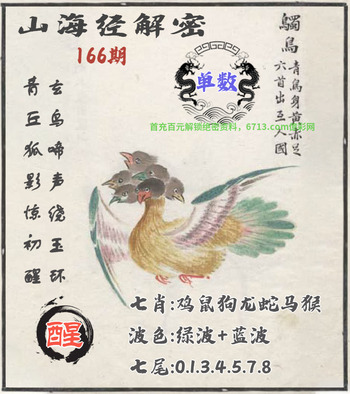 山海经解密
166期
单数
首充百元解锁绝密资料，6713.com
鸀鸟
青鸟身黄赤足
六首出互人国
玄鸟啼声绕玉环
青丘狐影惊初醒
醒
七肖:鸡鼠狗龙蛇马猴
波色:绿波+蓝波
七尾:0.1.3.4.5.7.8